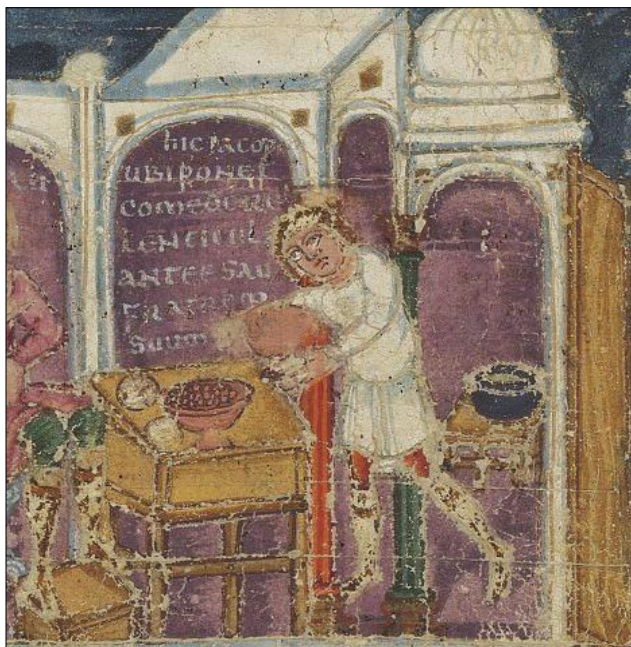 hic iacob
ubi ponet
comedere
lenticula
ante esau
fratrem
suum